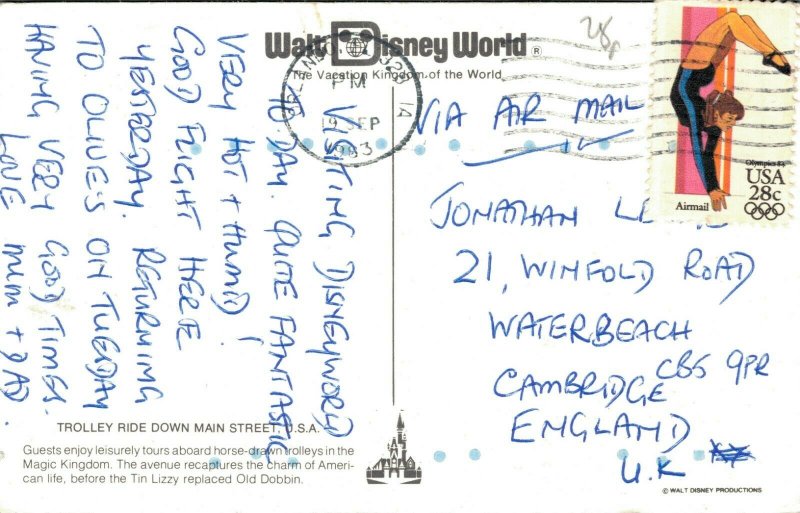 Walt Disney World ®
The Vacation Kingdom of the World
PM
SEP
VISITING DISNEYWORLD
TO DAY. QUITE FANTASTIC
VERY HOT + HUMID!
GOOD FLIGHT HERE
YESTERDAY. RETURNING
TO OLIVE'S ON TUESDAY
HAVING VERY GOOD TIMES.
LOVE MUM + DAD.
TROLLEY RIDE DOWN MAIN STREET, U.S.A.
Guests enjoy leisurely tours aboard horse-drawn trolleys in the
Magic Kingdom. The avenue recaptures the charm of Ameri-
can life, before the Tin Lizzy replaced Old Dobbin.
28p
Olympics 84
USA
28c
Airmail
VIA AIR MAIL
JONATHAN
21, WINFOLD ROAD
WATERBEACH
CAMBRIDGE CB5 9PR
ENGLAND
U.K
© WALT DISNEY PRODUCTIONS